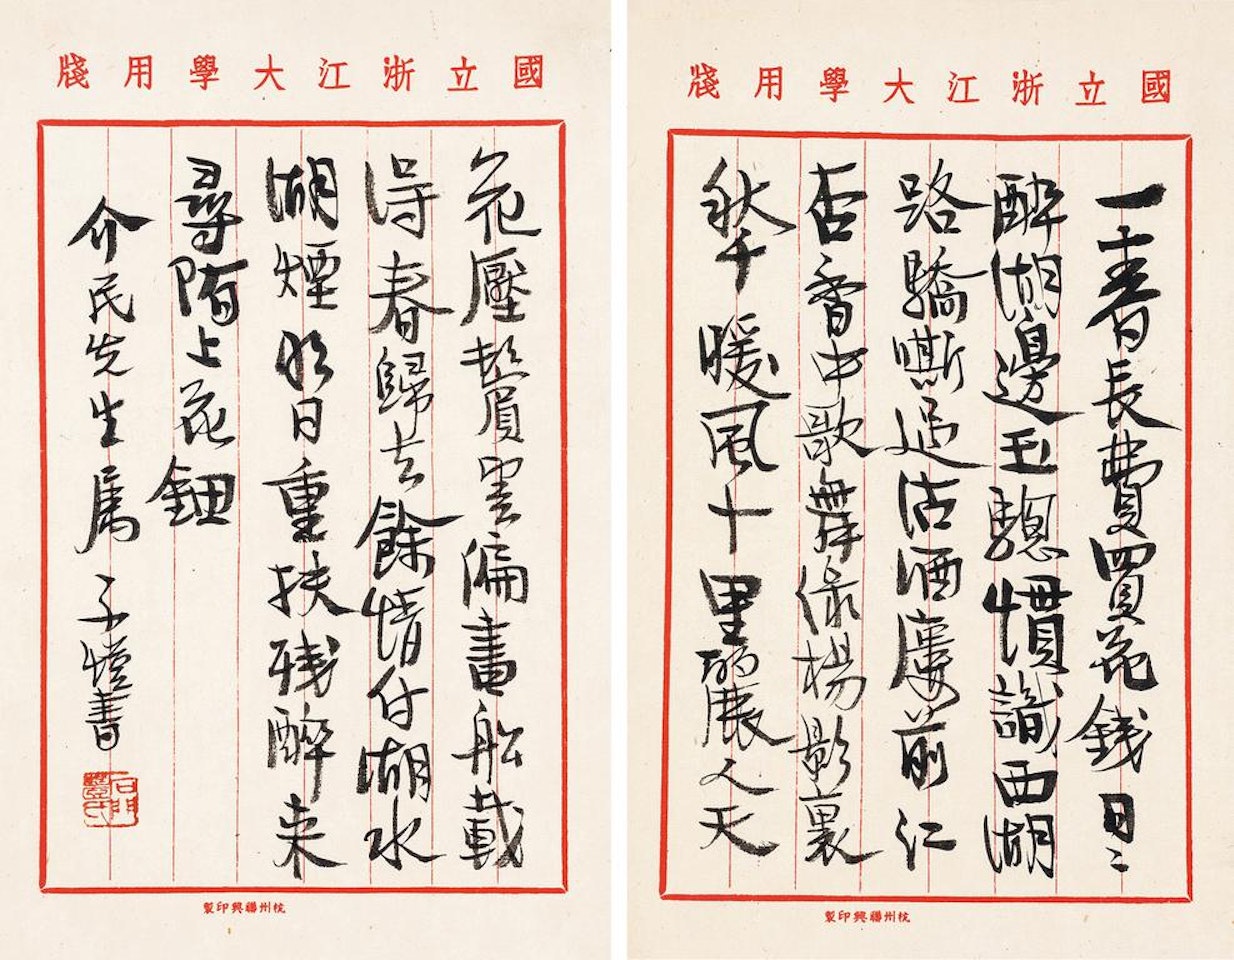 國立浙江大學用牋
一春長費買花錢日〻
醉湖邊玉驄慣識西湖
路驕嘶過沽酒廔前红
杏香中歌舞綠楊影裏
秋千暖風十里麗人天
杭州聯興印製
國立浙江大學用牋
花壓鬢雲偏畫船載
得春歸去餘情付湖水
湖煙明日重扶残醉来
尋陌上花鈿
介民先生属 子愷書
石門豐氏
杭州聯興印製